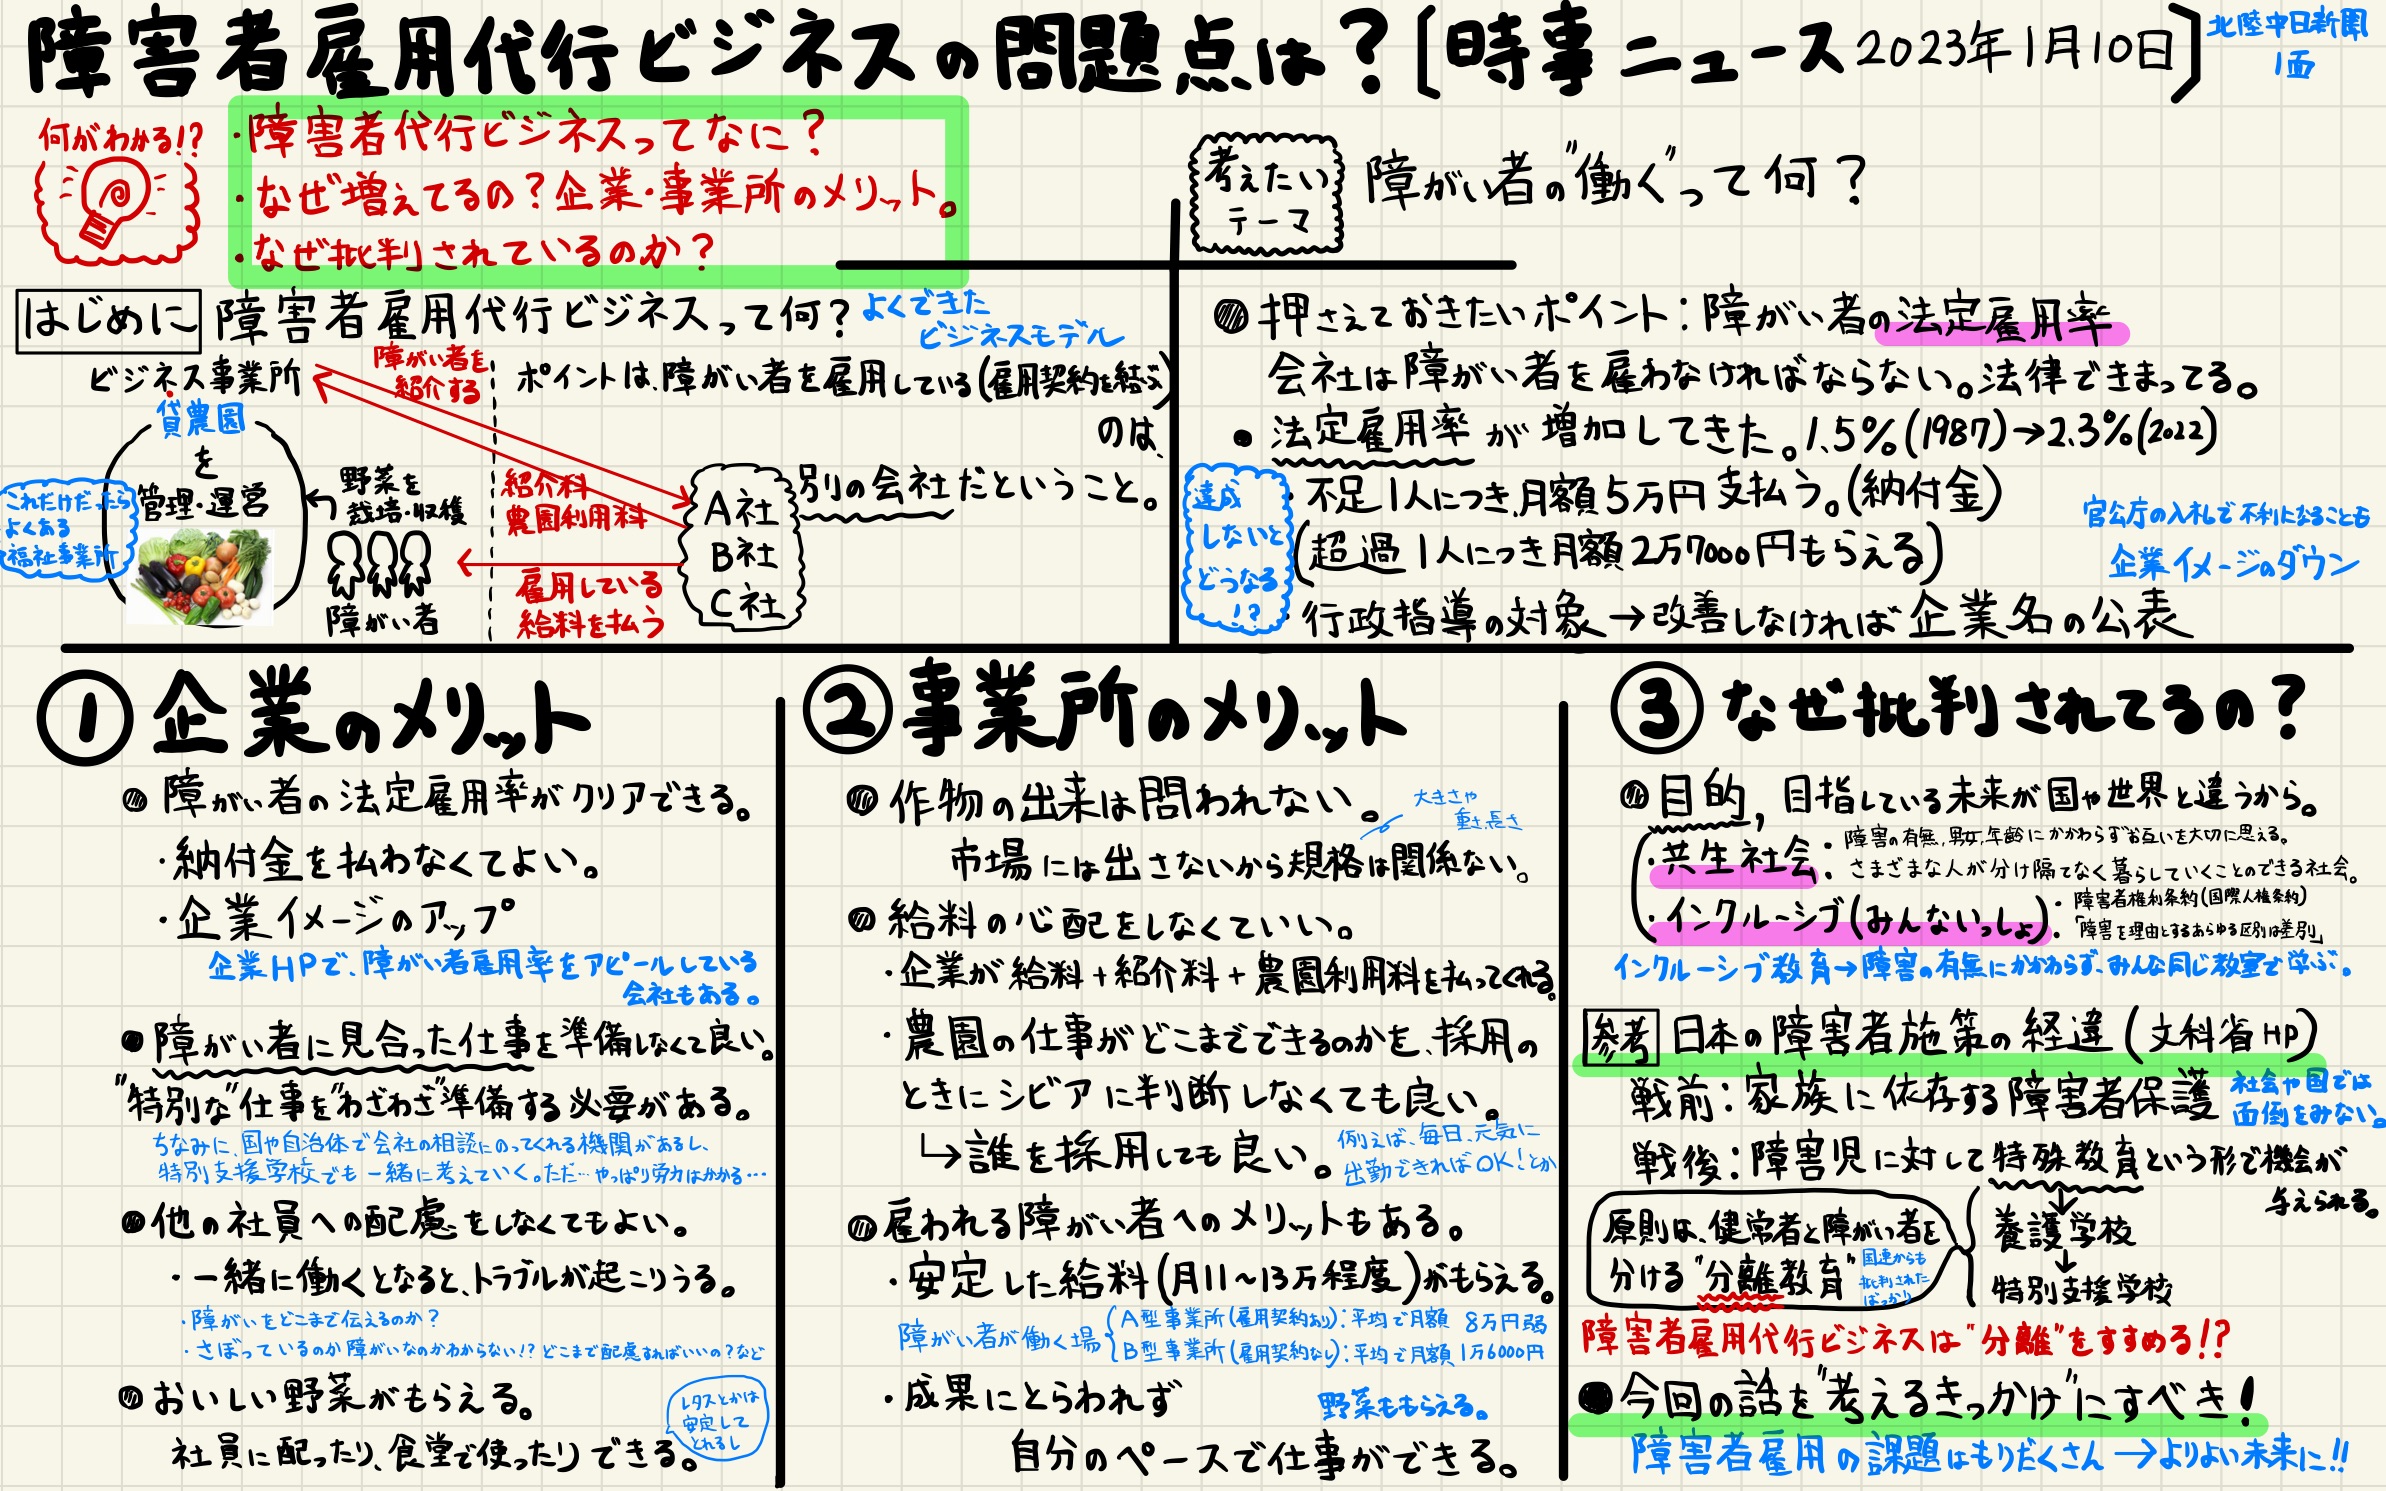 障害者雇用代行ビジネスの問題点は？〔時事ニュース2023年1月10日〕
北陸中日新聞
1面
何がわかる!?
・障害者代行ビジネスってなに？
・なぜ増えてるの？企業・事業所のメリット。
・なぜ批判されているのか？
考えたい
テーマ
障がい者の"働く"って何？
はじめに 障害者雇用代行ビジネスって何？
よくできた
ビジネスモデル
ビジネス事業所
障がい者を
紹介する
ポイントは、障がい者を雇用している(雇用契約を結ぶ)
のは、
別の会社だということ。
貸農園
を
管理・運営
これだけだったら
よくある
福祉事業所
野菜を
栽培・収穫
障がい者
紹介料
農園利用料
雇用している
給料を払う
A社
B社
C社
押さえておきたいポイント：障がい者の法定雇用率
会社は障がい者を雇わなければならない。法律できまってる。
・法定雇用率が増加してきた。1.5%(1987)→2.3%(2022)
達成
しないと
どうなる
!?
・不足1人につき、月額5万円支払う。(納付金)
(超過1人につき月額2万7000円もらえる)
・行政指導の対象→改善しなければ企業名の公表
官公庁の入札で不利になることも
企業イメージのダウン
①企業のメリット
障がい者の法定雇用率がクリアできる。
・納付金を払わなくてよい。
・企業イメージのアップ
企業HPで、障がい者雇用率をアピールしている
会社もある。
障がい者に見合った仕事を準備しなくて良い。
"特別な"仕事を"わざわざ"準備する必要がある。
ちなみに、国や自治体で会社の相談にのってくれる機関があるし、
特別支援学校でも一緒に考えていく。ただ…やっぱり労力はかかる…
他の社員への配慮をしなくてもよい。
・一緒に働くとなると、トラブルが起こりうる。
・障がいをどこまで伝えるのか？
・さぼっているのか障がいなのかわからない!? どこまで配慮すればいいの？など
おいしい野菜がもらえる。
社員に配ったり、食堂で使ったりできる。
レタスとかは
安定して
とれるし
②事業所のメリット
作物の出来は問われない。
大きさや
重さ、長さ
市場には出さないから規格は関係ない。
給料の心配をしなくていい。
・企業が給料+紹介料+農園利用料を払ってくれる。
・農園の仕事がどこまでできるのかを、採用の
ときにシビアに判断しなくても良い。
↳誰を採用しても良い。
例えば、毎日、元気に
出勤できればOK！とか
雇われる障がい者へのメリットもある。
・安定した給料(月11〜13万程度)がもらえる。
障がい者が働く場
A型事業所(雇用契約あり)：平均で月額 8万円弱
B型事業所(雇用契約なし)：平均で月額1万6000円
・成果にとらわれず
野菜ももらえる。
自分のペースで仕事ができる。
③なぜ批判されてるの？
目的,目指している未来が国や世界と違うから。
・共生社会：
障害の有無,男女,年齢にかかわらずお互いを大切に思える。
さまざまな人が分け隔てなく暮らしていくことのできる社会。
・インクルーシブ(みんないっしょ)：
障害者権利条約(国際人権条約)
「障害を理由とするあらゆる区別は差別」
インクルーシブ教育→障害の有無にかかわらず、みんな同じ教室で学ぶ。
参考 日本の障害者施策の経違(文科省HP)
戦前：家族に依存する障害者保護
社会や国では
面倒をみない。
戦後：障害児に対して特殊教育という形で機会が
与えられる。
↓
養護学校
↓
特別支援学校
原則は、健常者と障がい者を
分ける"分離教育"
国連からも
批判された
ばっかり
障害者雇用代行ビジネスは"分離"をすすめる!?
今回の話を"考えるきっかけ"にすべき！
障害者雇用の課題はもりだくさん→よりよい未来に!!